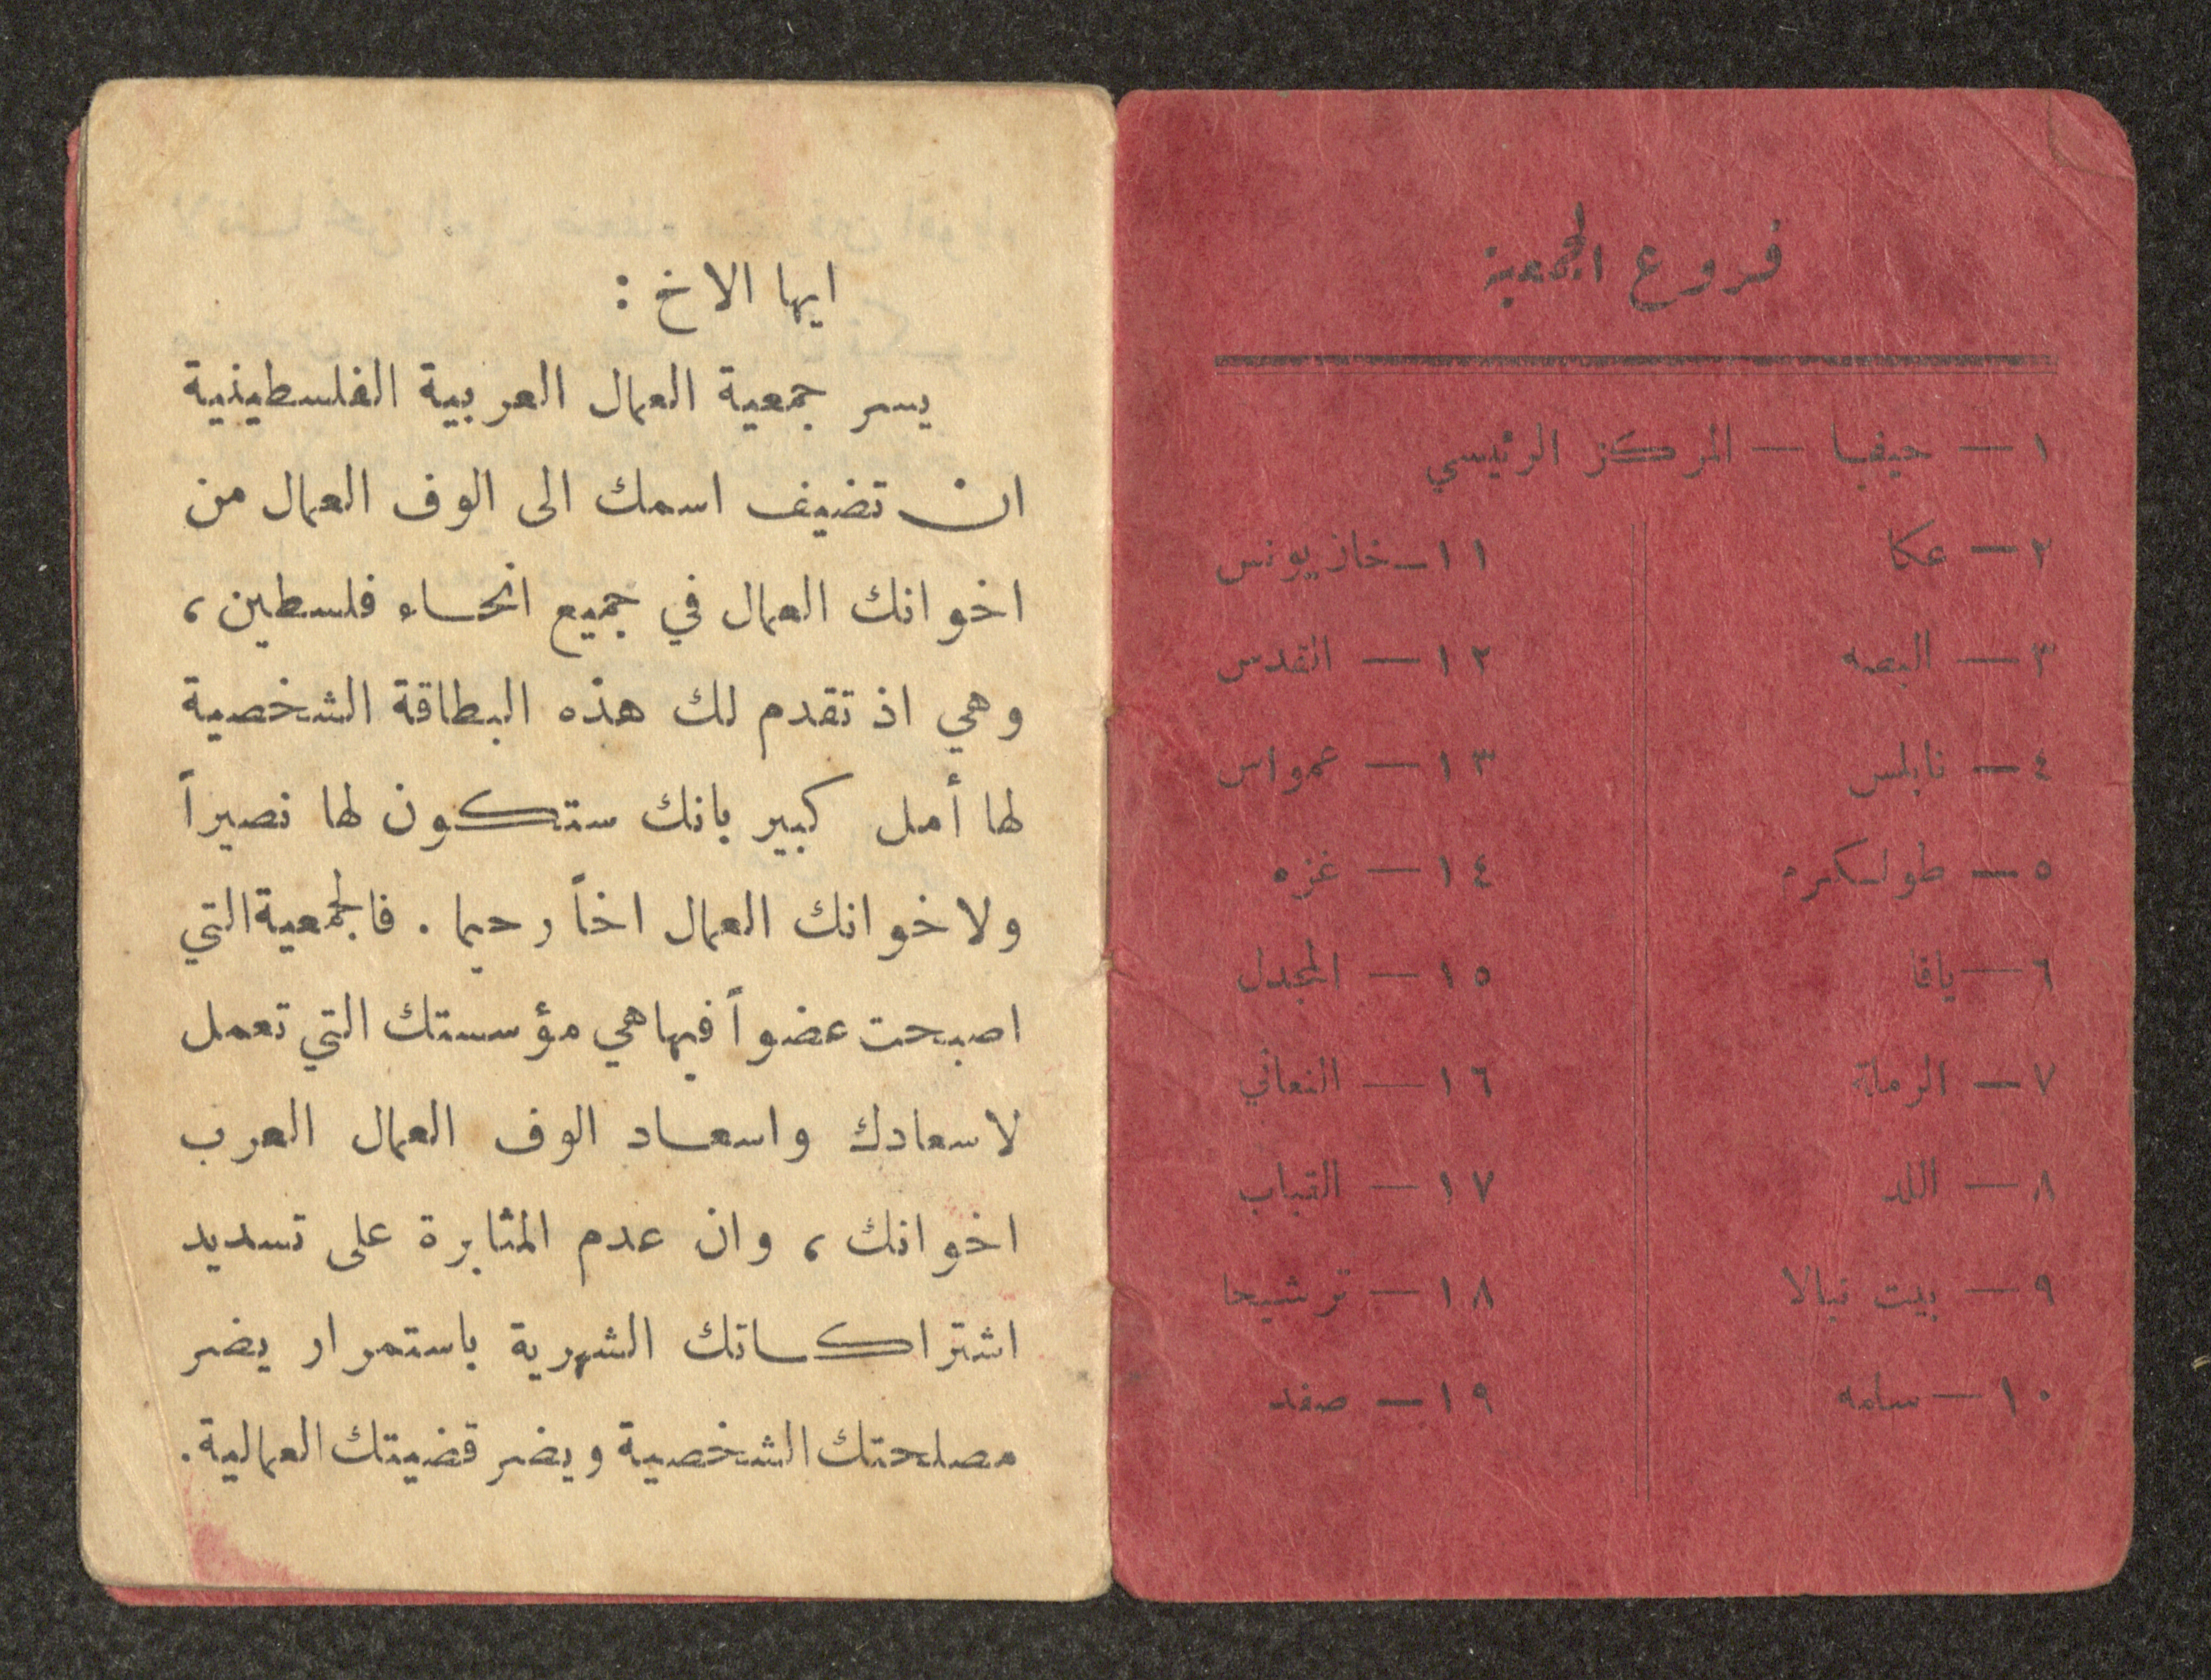 فروع الجمعية
١ — حيفا — المركز الرئيسي
٢ — عكا
٣ — البصه
٤ — نابلس
٥ — طولكرم
٦ — يافا
٧ — الرملة
٨ — اللد
٩ — بيت نبالا
١٠ — سلمه
١١ — خان يونس
١٢ — القدس
١٣ — عمواس
١٤ — غزه
١٥ — المجدل
١٦ — النعاني
١٧ — القباب
١٨ — ترشيحا
١٩ — صفد
ايها الاخ :
يسر جمعية العمال العربية الفلسطينية
ان تضيف اسمك الى الوف العمال من
اخوانك العمال في جميع انحاء فلسطين ،
وهي اذ تقدم لك هذه البطاقة الشخصية
لها أمل كبير بانك ستكون لها نصيراً
ولاخوانك العمال اخاً رحيما . فالجمعية التي
اصبحت عضواً فيها هي مؤسستك التي تعمل
لاسعادك واسعاد الوف العمال العرب
اخوانك ، وان عدم المثابرة على تسديد
اشتراكاتك الشهرية باستمرار يضر
مصلحتك الشخصية ويضر قضيتك العمالية .